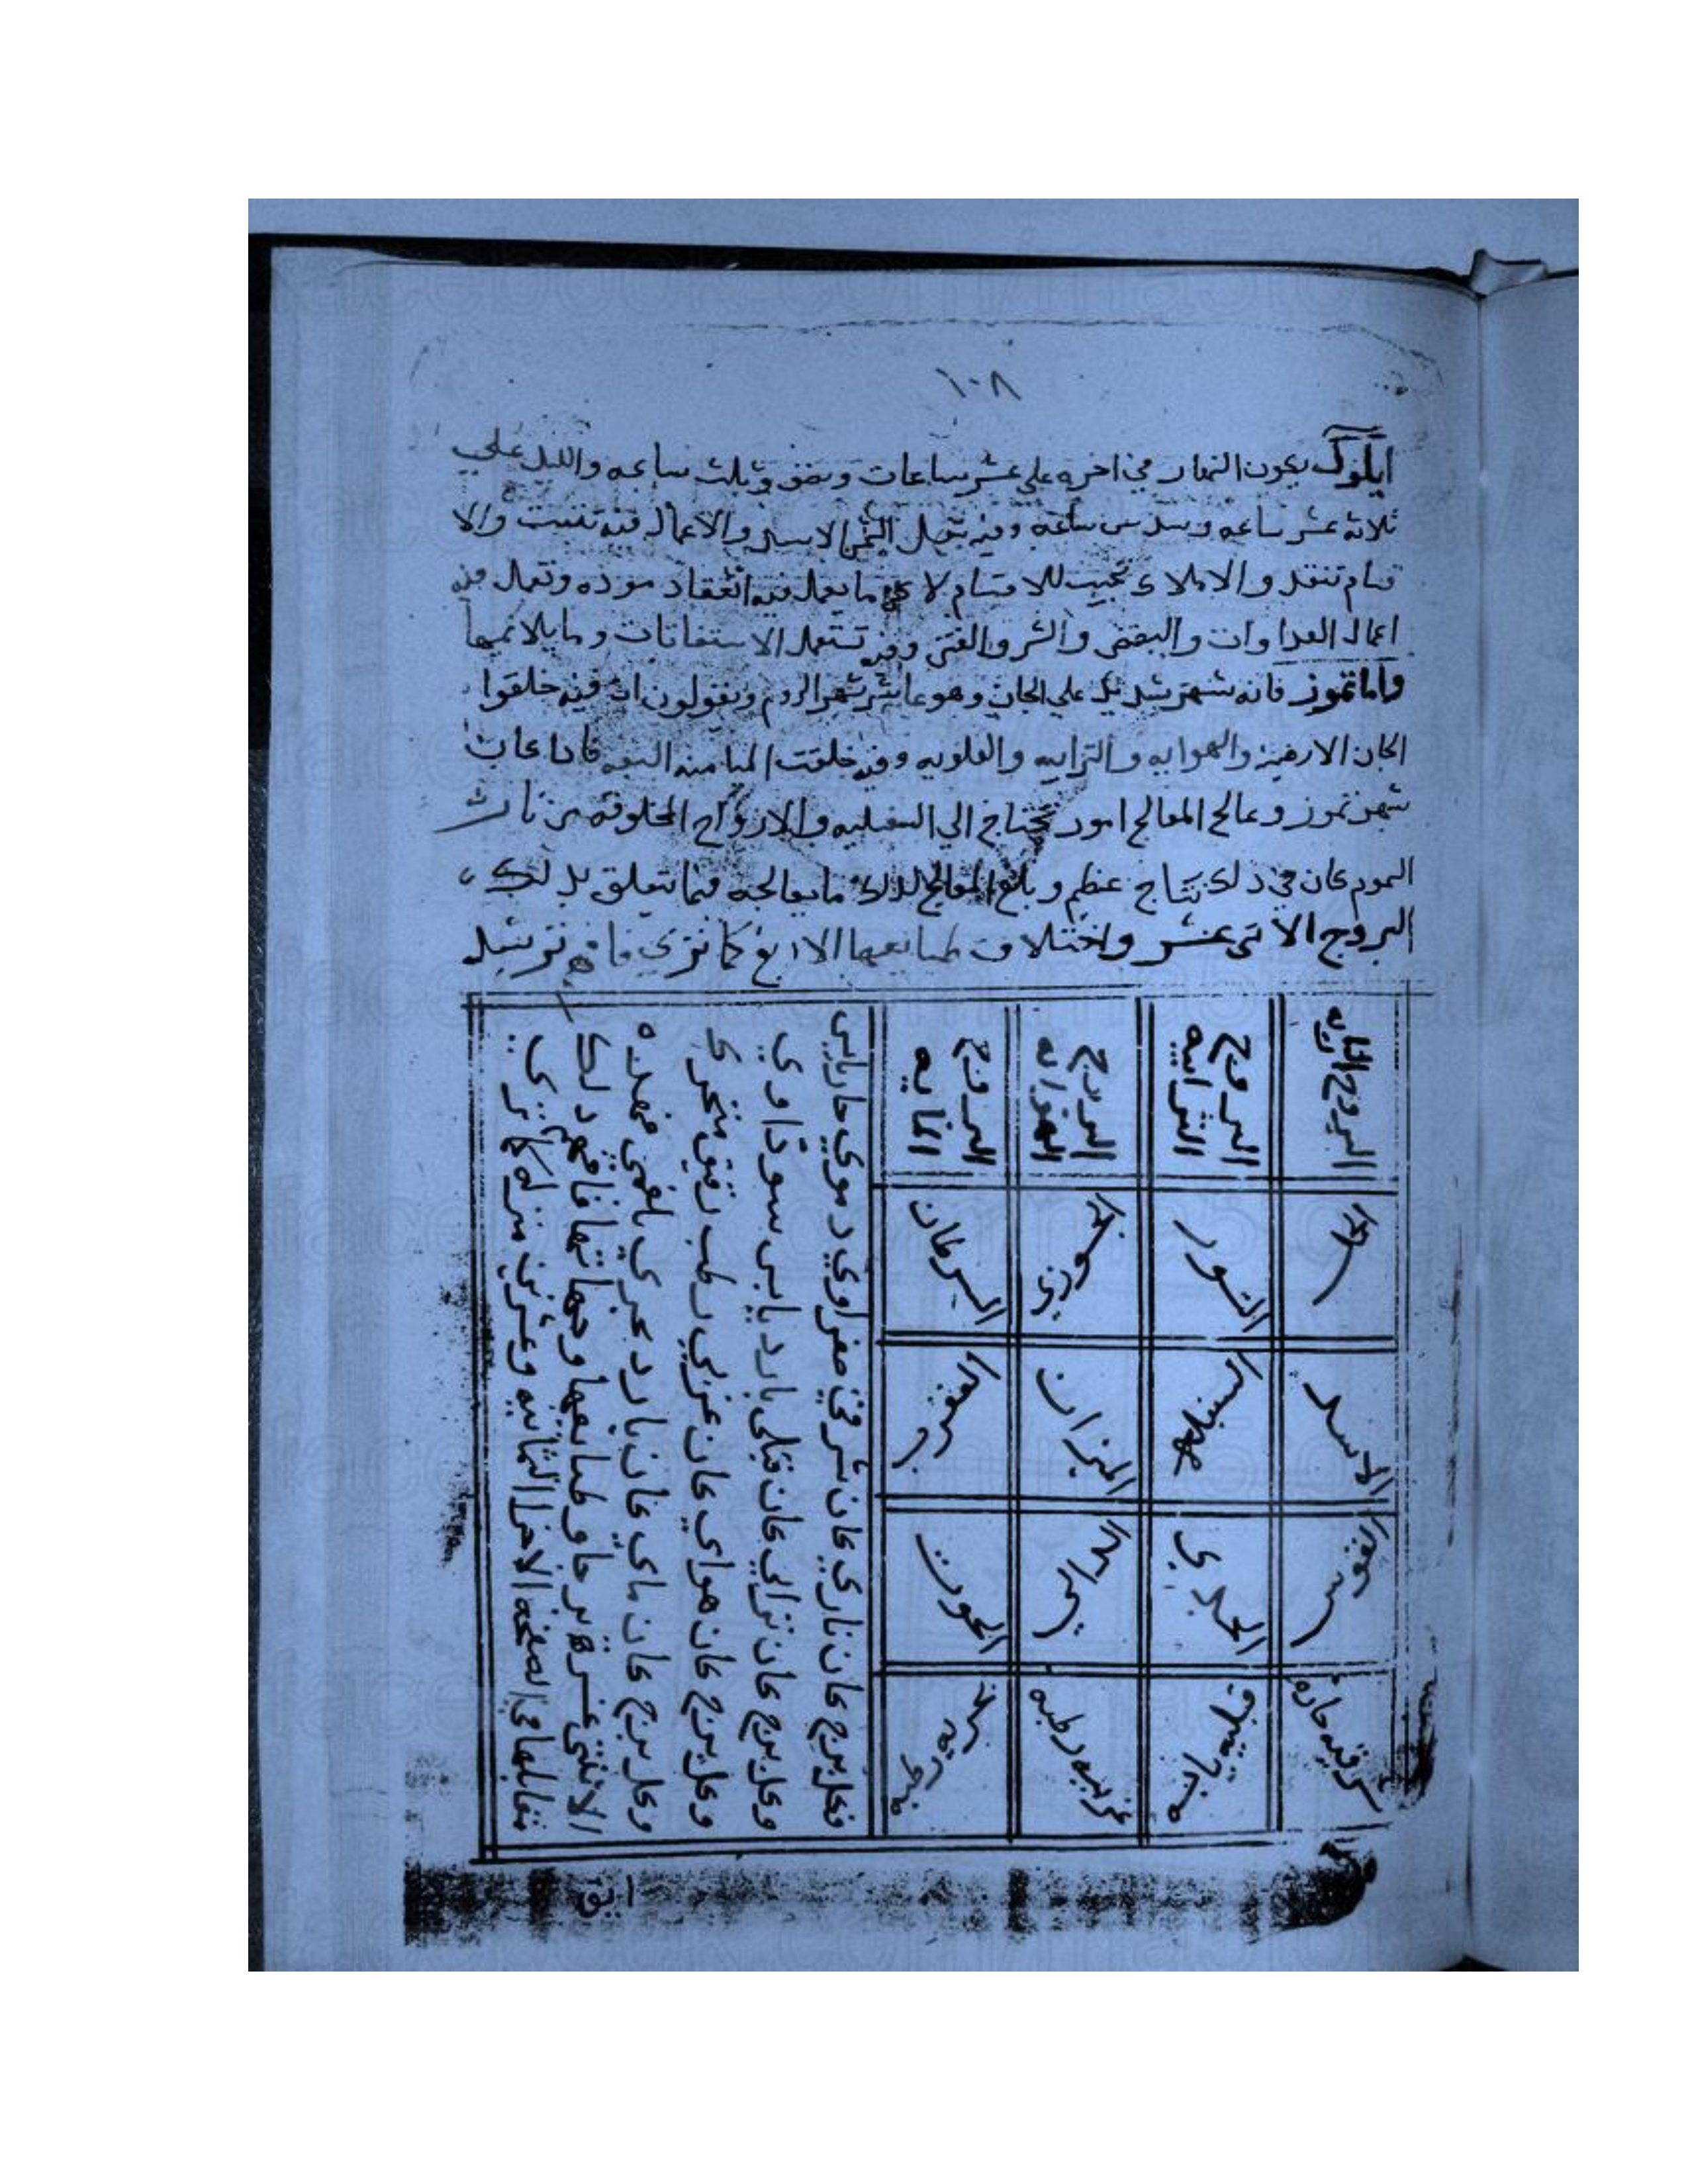 ١٠٨
ايلوك يكون النهار في اخره علي عشر ساعات ونصف وثلث ساعه والليل علي
ثلاثة عشر ساعه وسدس ساعه وفيه تنصل الشمس الاسد والاعمال فيه تثبت والا
قسام تنفد والاملاك تجيب للاقسام لا ما يعمل فيه انعقاد موده وتعمل فيه
اعمال العداوات والبغض والشر والفتن وفيه تستعمل الاستغاثات وما يلائمها
واما تموز فانه شهر شديد علي الجان وهو عاشر شهر الروم ويقولون ان فيه خلقوا
الجان الارضيه والهوايه والترابيه والعلويه وفيه خلقت فاذا كان
شهر تموز وعالج المعالج امور تحتاج الي السفليه والارواح المخلوقه من نار
السموم كان في ذلك نتاج عظيم وبلغ المعالج لذلك ما يعالجه فيما يتعلق بذلك
البروج الاثني عشر واختلاف طبايعها الاربع كما تري فافهم ترشد
البروج الناريه
البروج الترابيه
البروج الهوايه
البروج المايه
الحمل
الثور
الجوزي
السرطان
الاسد
السنبله
الميزان
العقرب
القوس
الجدي
الدالي
الحوت
شرقيه حاره
غربيه رطبه
فكل برج كان ناري كان شرقي صفراوي دموي حار يابس
وكل برج كان ترابي كان قبلي بارد يابس سوداوي
وكل برج كان هواي كان غربي رطب رقيق متحرك
وكل برج كان ماي كان بارد بحري بلغمي فهذه
الاثني عشر برجا وطبايعها وجهاتها فافهم ذلك
مقابلها في الصفحه الاخرا الثمانيه وعشرين منزله كما تري